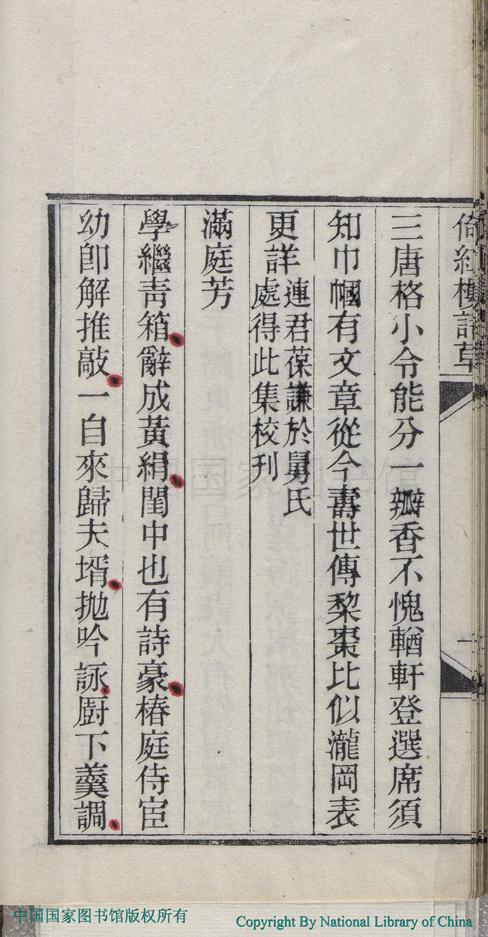 倚紅樓詩草
三唐格小令能分一瓣香不愧輶軒登選席須
知巾幗有文章從今壽世傳棃棗比似瀧岡表
更詳連君葆謙於舅氏
處得此集校刊
滿庭芳
學繼靑箱辭成黃絹閨中也有詩豪椿庭侍宦
幼卽解推敲一自來歸夫壻拋吟詠厨下羹調
中国国家图书馆版权所有
Copyright By National Library of China